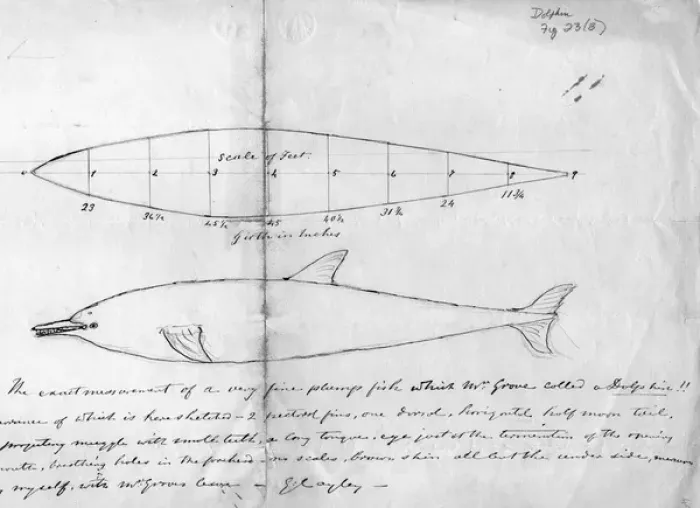 Dolphin
Fig 23(B)
Scale of Feet.
0 1 2 3 4 5 6 7 8 9
23 36½ 45½ 45 40½ 31¾ 24 11¾
Girth in Inches
The exact measurement of a very fine plump fish which Mr. Grove called a Dolphin!!
of which is here sketched - 2 pectoral fins, one dorsal, horizontal half moon tail,
projecting muzzle with small teeth, a long tongue, eye just at the termination of the opening
mouth, breathing holes in the forehead - no scales, brown skin all but the under side,
myself, with Mr. Groves leave - G. Cayley -